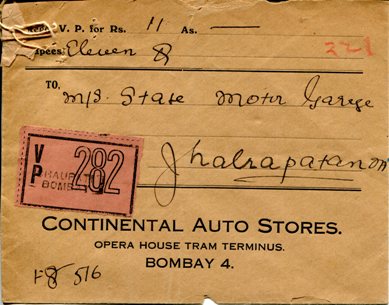 V. P. for Rs. 11 As. —
Rupees: Eleven
321
TO.
M/s. State Motor Garage
V P 282
BOMB
Jhalrapatan
CONTINENTAL AUTO STORES.
OPERA HOUSE TRAM TERMINUS.
BOMBAY 4.
516